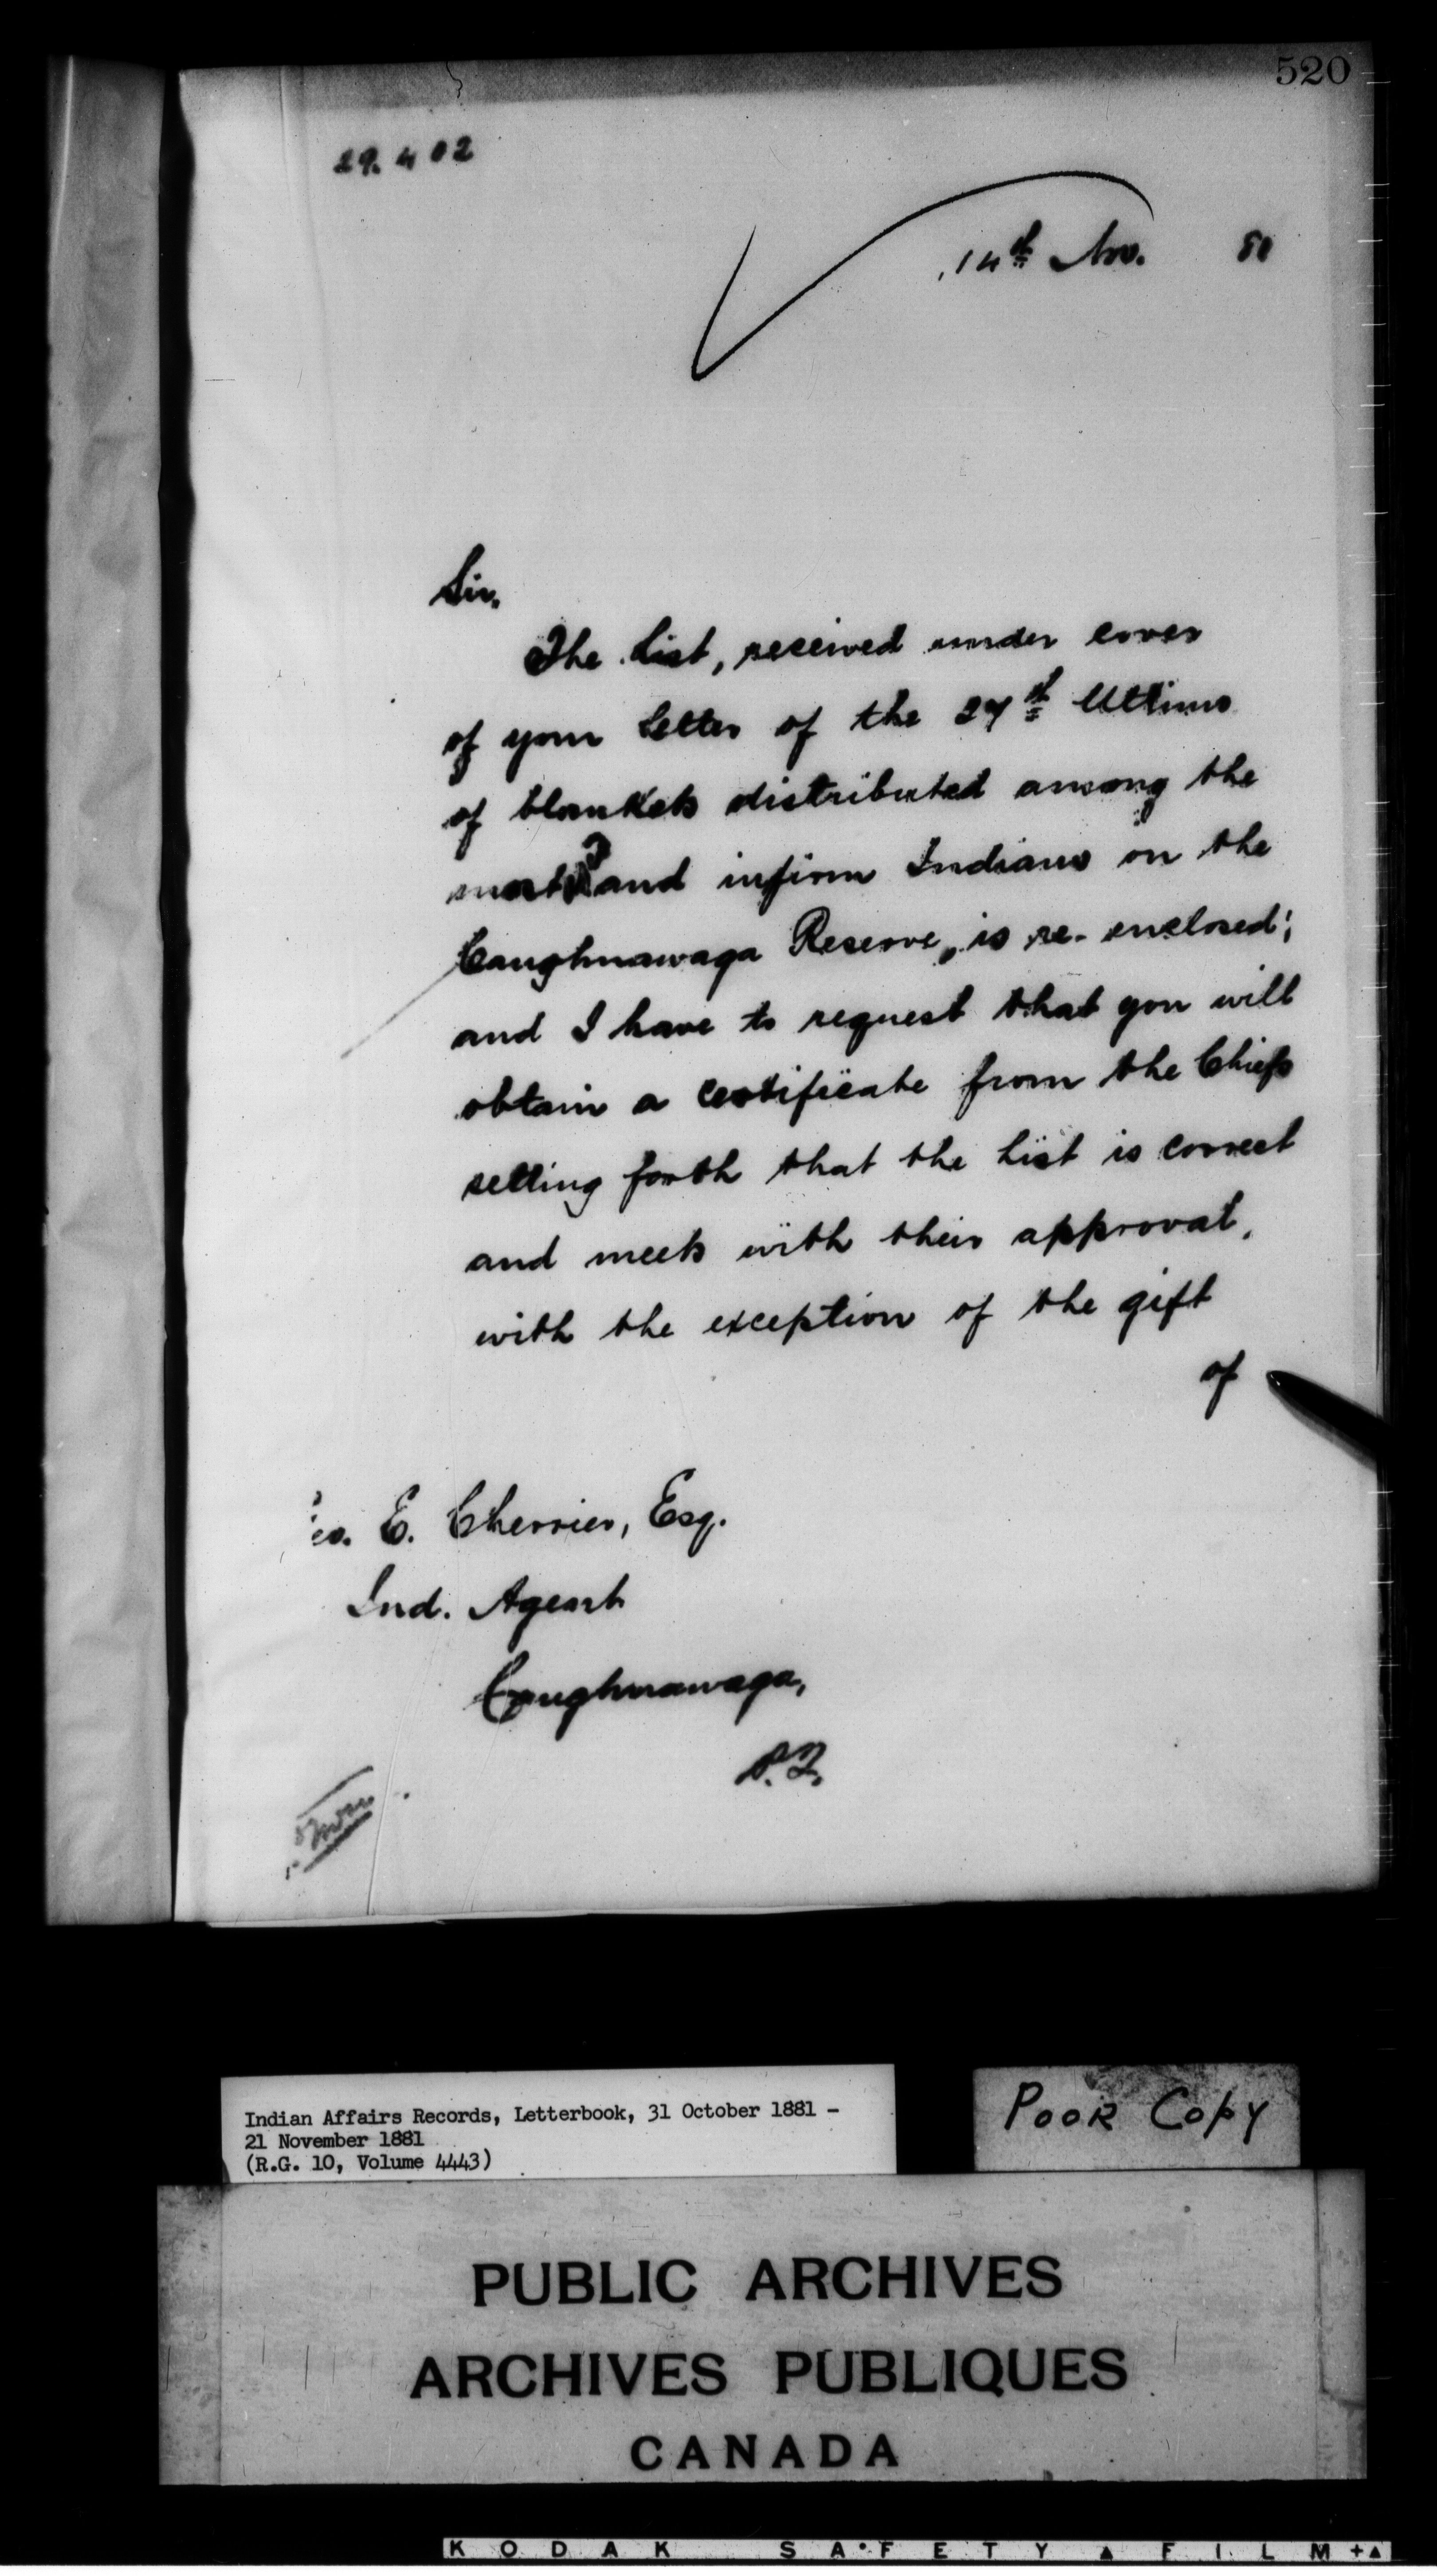 520
29.402
14th Nov. 81
Sir,
The List, received under cover
of your letter of the 27th Ultimo
of blankets distributed among the
most and infirm Indians on the
Caughnawaga Reserve, is re-enclosed;
and I have to request that you will
obtain a certificate from the Chiefs
setting forth that the List is correct
and meets with their approval,
with the exception of the gift
of
E. Cherrier, Esq.
Ind. Agent
Caughnawaga,
P.Q.
Indian Affairs Records, Letterbook, 31 October 1881 -
21 November 1881
(R.G. 10, Volume 4443)
Poor Copy
PUBLIC ARCHIVES
ARCHIVES PUBLIQUES
CANADA
KODAK SAFETY FILM